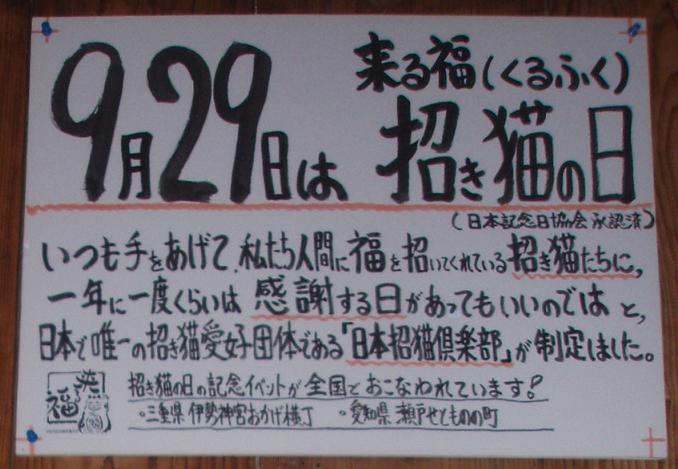 9月29日は 来る福(くるふく)
招き猫の日
(日本記念日協会承認済)
いつも手をあげて、私たち人間に福を招いてくれている招き猫たちに、
一年に一度くらいは感謝する日があってもいいのではと、
日本で唯一の招き猫愛好団体である「日本招猫倶楽部」が制定しました。
招き猫の日の記念イベントが全国でおこなわれています!
・三重県 伊勢神宮おかげ横丁 ・愛知県 瀬戸せともの町
来福